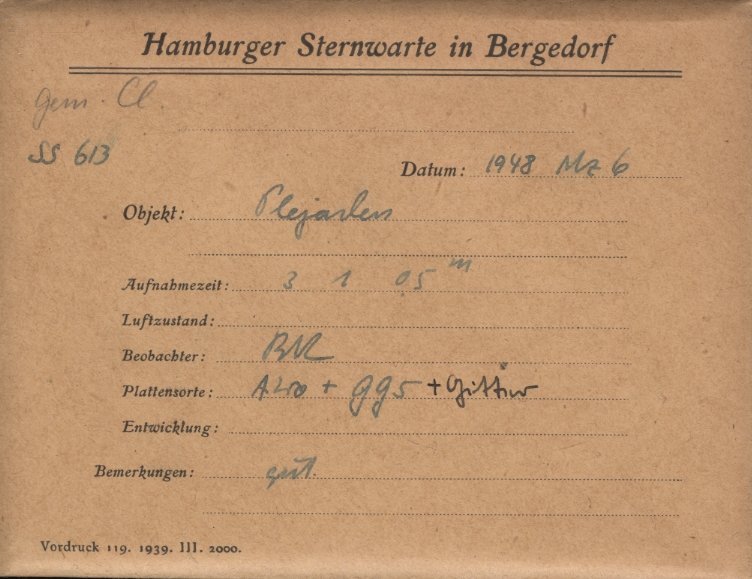 Hamburger Sternwarte in Bergedorf
gem. Cl.
SS 613
Datum: 1948 Mz 6
Objekt: Plejaden
Aufnahmezeit: 3 1 05 m
Luftzustand:
Beobachter:
Plattensorte: + gg5 + Gitter
Entwicklung:
Bemerkungen: gut.
Vordruck 119. 1939. III. 2000.